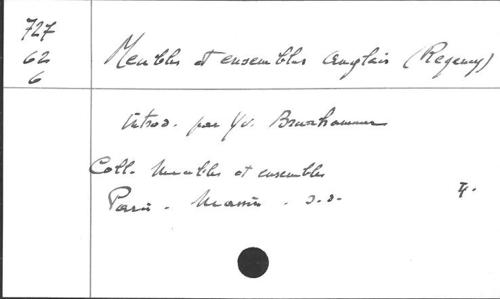 727
62
6
Meubles et ensembles anglais (Regency)
Introd. par Yv. Brunhammer
Coll. Meubles et ensembles
Paris. Massin. s.d.